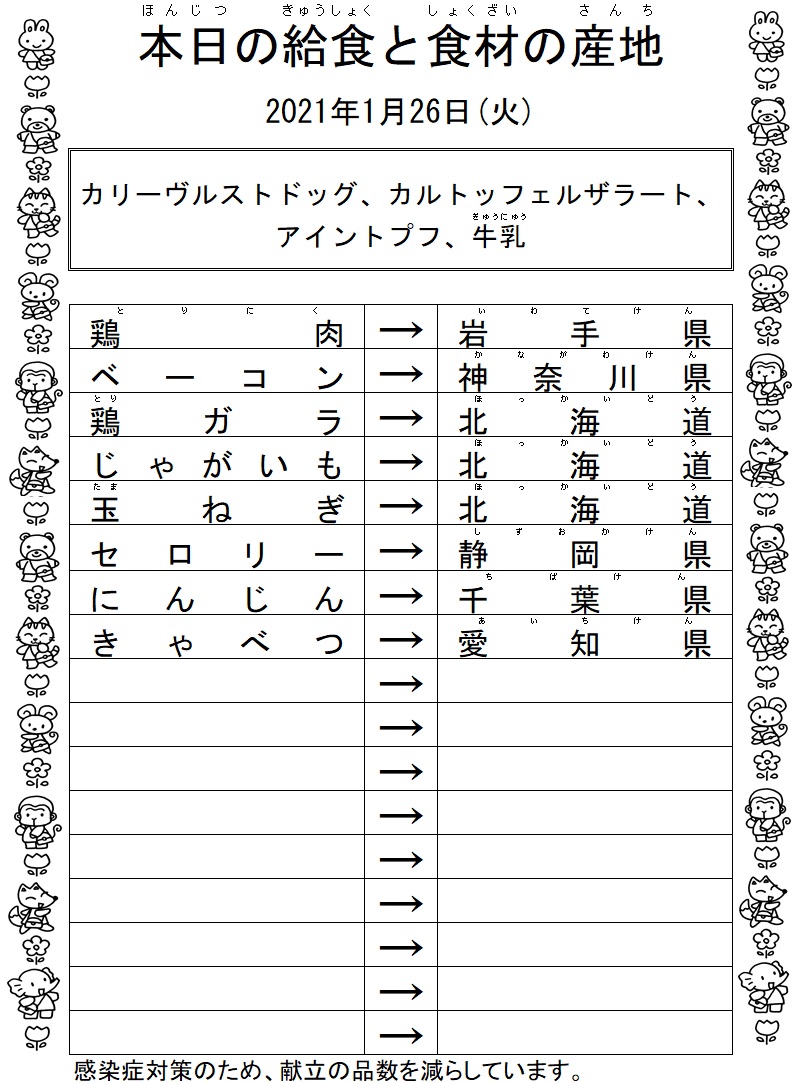 ほんじつ きゅうしょく しょくざい さんち
本日の給食と食材の産地
2021年1月26日(火)
カリーヴルストドッグ、カルトッフェルザラート、
ぎゅうにゅう
アイントプフ、牛乳
とりにく いわてけん
鶏肉 → 岩手県
かながわけん
ベーコン → 神奈川県
とり ほっかいどう
鶏ガラ → 北海道
ほっかいどう
じゃがいも → 北海道
たま ほっかいどう
玉ねぎ → 北海道
しずおかけん
セロリー → 静岡県
ちばけん
にんじん → 千葉県
あいちけん
きゃべつ → 愛知県
→
→
→
→
→
→
→
→
→
感染症対策のため、献立の品数を減らしています。